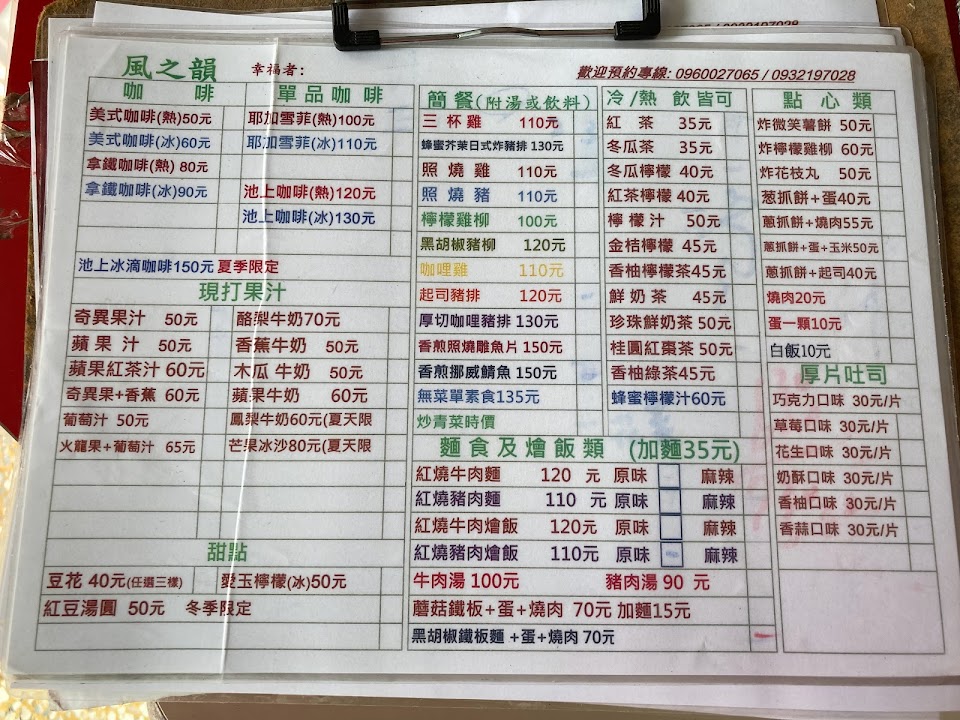 風之韻
幸福者:
歡迎預約專線: 0960027065 / 0932197028
咖 啡
美式咖啡(熱)50元
美式咖啡(冰)60元
拿鐵咖啡(熱) 80元
拿鐵咖啡(冰)90元
單品咖啡
耶加雪菲(熱)100元
耶加雪菲(冰)110元
池上咖啡(熱)120元
池上咖啡(冰)130元
池上冰滴咖啡150元 夏季限定
現打果汁
奇異果汁 50元
蘋果汁 50元
蘋果紅茶汁 60元
奇異果+香蕉 60元
葡萄汁 50元
火龍果+葡萄汁 65元
酪梨牛奶70元
香蕉牛奶 50元
木瓜 牛奶 50元
蘋果牛奶 60元
鳳梨牛奶60元(夏天限
芒果冰沙80元(夏天限
甜點
豆花 40元(任選三樣)
愛玉檸檬(冰)50元
紅豆湯圓 50元 冬季限定
簡餐(附湯或飲料)
三杯雞 110元
蜂蜜芥茉日式炸豬排 130元
照燒雞 110元
照燒豬 110元
檸檬雞柳 100元
黑胡椒豬柳 120元
咖哩雞 110元
起司豬排 120元
厚切咖哩豬排 130元
香煎照燒雕魚片 150元
香煎挪威鯖魚 150元
無菜單素食135元
炒青菜時價
冷/熱 飲皆可
紅茶 35元
冬瓜茶 35元
冬瓜檸檬 40元
紅茶檸檬 40元
檸檬汁 50元
金桔檸檬 45元
香柚檸檬茶45元
鮮奶茶 45元
珍珠鮮奶茶 50元
桂圓紅棗茶 50元
香柚綠茶45元
蜂蜜檸檬汁60元
麵食及燴飯類 (加麵35元)
紅燒牛肉麵 120 元 原味 麻辣
紅燒豬肉麵 110 元 原味 麻辣
紅燒牛肉燴飯 120元 原味 麻辣
紅燒豬肉燴飯 110元 原味 麻辣
牛肉湯 100元 豬肉湯 90 元
蘑菇鐵板+蛋+燒肉 70元 加麵15元
黑胡椒鐵板麵 +蛋+燒肉 70元
點心類
炸微笑薯餅 50元
炸檸檬雞柳 60元
炸花枝丸 50元
葱抓餅+蛋40元
蔥抓餅+燒肉55元
蔥抓餅+蛋+玉米50元
蔥抓餅+起司40元
燒肉20元
蛋一顆10元
白飯10元
厚片吐司
巧克力口味 30元/片
草莓口味 30元/片
花生口味 30元/片
奶酥口味 30元/片
香柚口味 30元/片
香蒜口味 30元/片